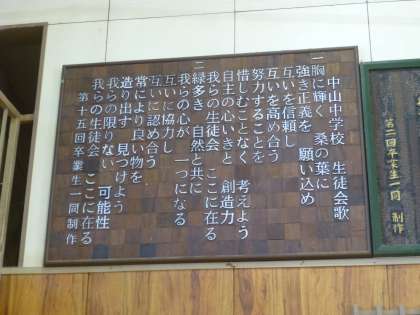 中山中学校 生徒会歌
一 胸に輝く 桑の葉に
強き正義を 願い込め
互いを信頼し
互いを高め合う
努力することを
惜しむことなく 考えよう
自主の心いきと 創造力
我らの生徒会 ここに在る
二 緑多き 自然と共に
我らの心が 一つになる
互いに協力し
互いに認め合う
常により良い物を
造り出す 見つけよう
我らの限りない 可能性
我らの生徒会 ここに在る
第十五回卒業生一同制作
第二回卒業生一同 制作